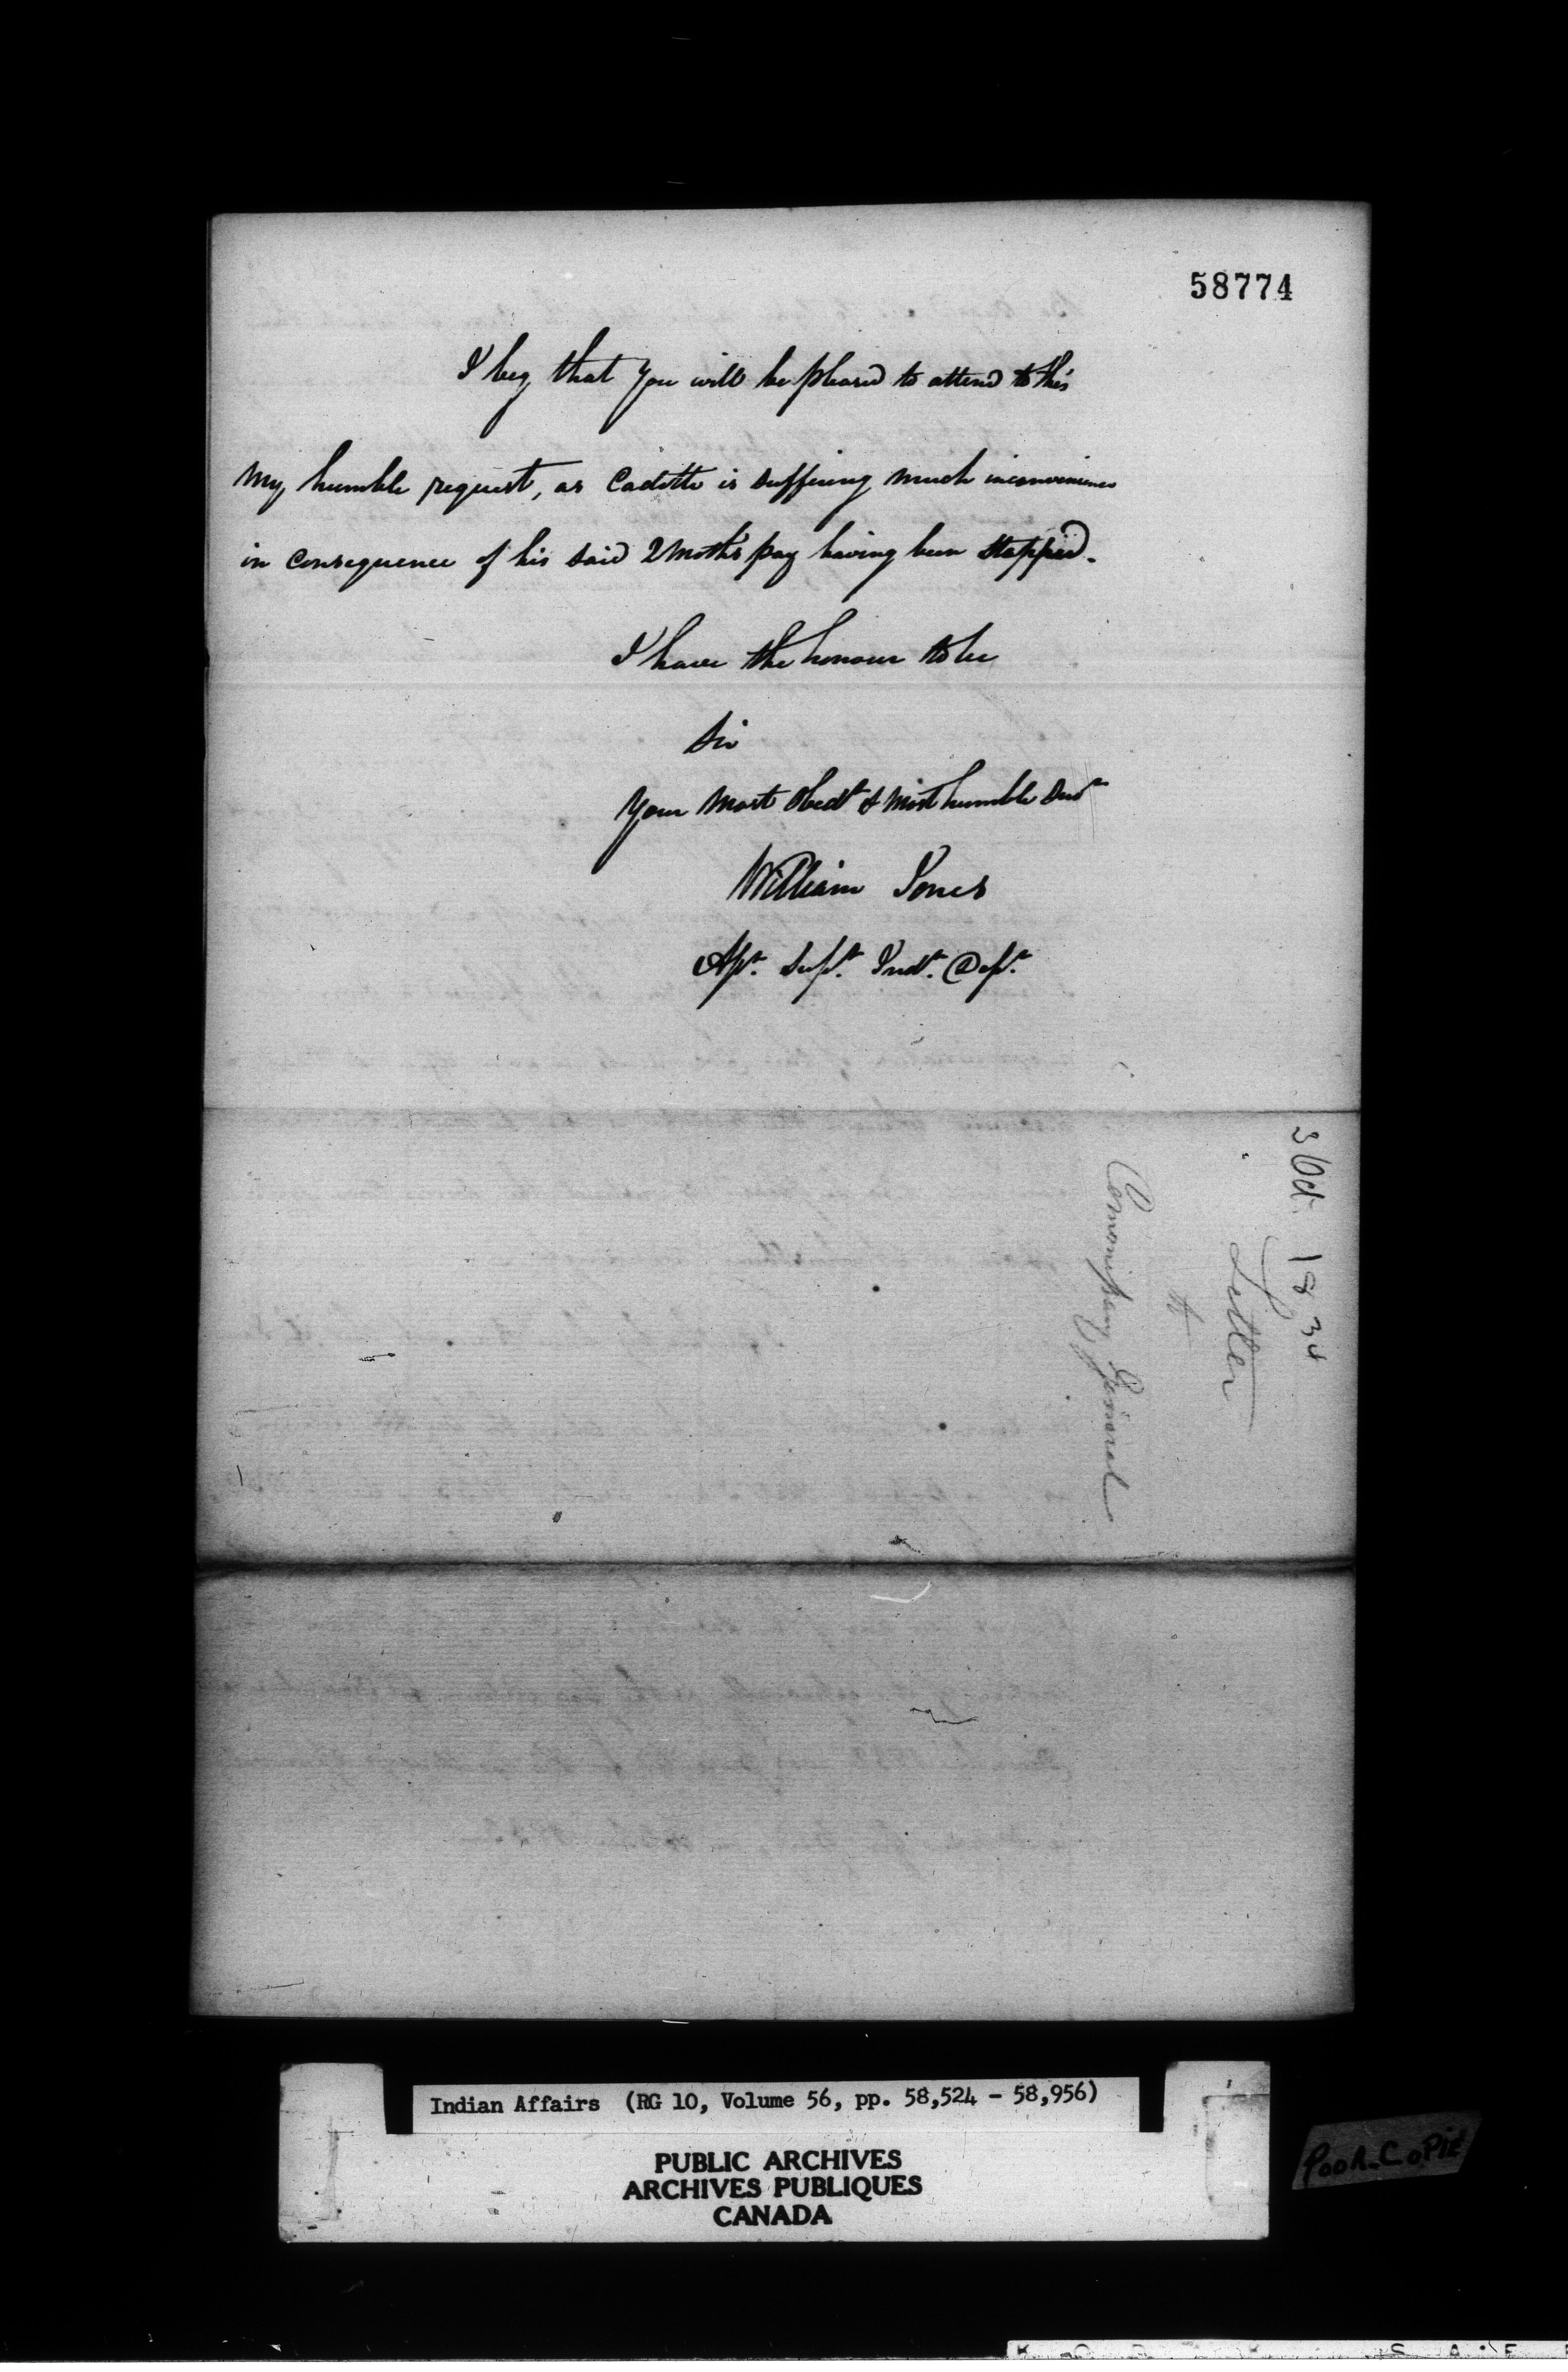 58774
I beg that you will be pleased to attend to this
my humble request, as Cadotte is suffering much inconvenience
in consequence of his said 2 Moths pay having been stopped.
I have the honour to be
Sir
Your most Obedt & most humble Servt
William Jones
Ast. Supt. Indn. Dept.
3 Oct. 1834
Letter
to
Commissary General
Indian Affairs (RG 10, Volume 56, pp. 58,524 - 58,956)
PUBLIC ARCHIVES
ARCHIVES PUBLIQUES
CANADA
Poor Copie
K O D A K S A F E